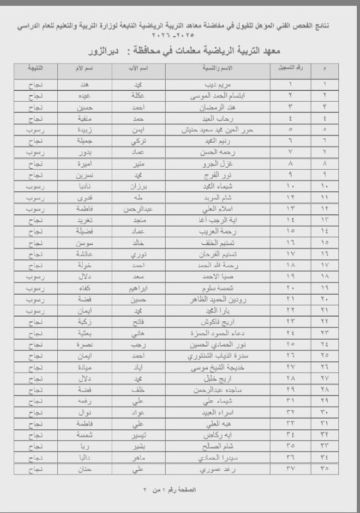 نتائج الفحص الفني المؤهل للقبول في مفاضلة معاهد التربية الرياضية التابعة لوزارة التربية والتعليم للعام الدراسي
٢٠٢٥-٢٠٢٦
معهد التربية الرياضية معلمات في محافظة : ديرالزور
م رقم التسجيل الاسم والنسبة الأب اسم الأم النتيجة
١ ١ مريم ديب هند نجاح
٢ ٢ ابتسام الحمد الموسى عكلة عيده نجاح
٣ ٣ هند الرمضان احمد حسين نجاح
٤ ٤ رحاب العبد حمد منفية نجاح
٥ ٥ حور العين سعيد حنيش ايمن زبيدة رسوب
٦ ٦ تركي جميلة نجاح
٧ ٦ رحمه الحسن عماد بدور رسوب
٨ ٨ غزل الجرو منير اميرة نجاح
٩ ٩ نور الفرج نسرين نجاح
١٠ ١٠ شيماء برزان ناديا رسوب
١١ ١٢ شام طه فدوى رسوب
١٢ ١٣ العلي عبدالرحمن فاطمة رسوب
١٣ ١٤ اية الرجب اغا ماجد تغريد نجاح
١٤ ١٥ رحمة العريب عماد فضيلة نجاح
١٥ ١٦ تسنيم الخلف خالد سوسن نجاح
١٦ ١٧ تسنيم الفرحان نوري عائشة نجاح
١٧ ١٨ رحمة الحمد احمد خولة نجاح
١٨ ١٩ صبا الاحمد سعد دلال رسوب
١٩ ٢٠ شمسه سلوم ابراهيم كفاء رسوب
٢٠ ٢١ رودين الحميد الظاهر حسين فضة رسوب
٢١ ٢٢ يارا ايمان رسوب
٢٢ ٢٣ اريج فاكوش فاتح زكية نجاح
٢٣ ٢٤ دعاء الحمود الحمزة هاني نجاح
٢٤ ٢٥ نور الحمادي الحسين رجب نصرة نجاح
٢٥ ٢٦ سدرة الذياب احمد ايمان نجاح
٢٦ ٢٧ خديجة الشيخ موسى اياد ميادة نجاح
٢٧ ٢٨ اريج خليل دلال نجاح
٢٨ ٢٩ ساجده عبدالرحمن خلف فضة نجاح
٢٩ ٣١ شيماء علي نجاح
٣٠ ٣٢ اسراء العبيد عواد نوال نجاح
٣١ ٣٣ هبه العلي علي فاطمة نجاح
٣٢ ٣٤ ايه ركاض تيسير شمسة نجاح
٣٣ ٣٥ شام الصالح بشير ربا نجاح
٣٤ ٣٦ سيدرا الحمادي ماهر داليا نجاح
٣٥ ٣٧ رغد عموري علي حنان نجاح
الصفحة رقم ١ من ٢